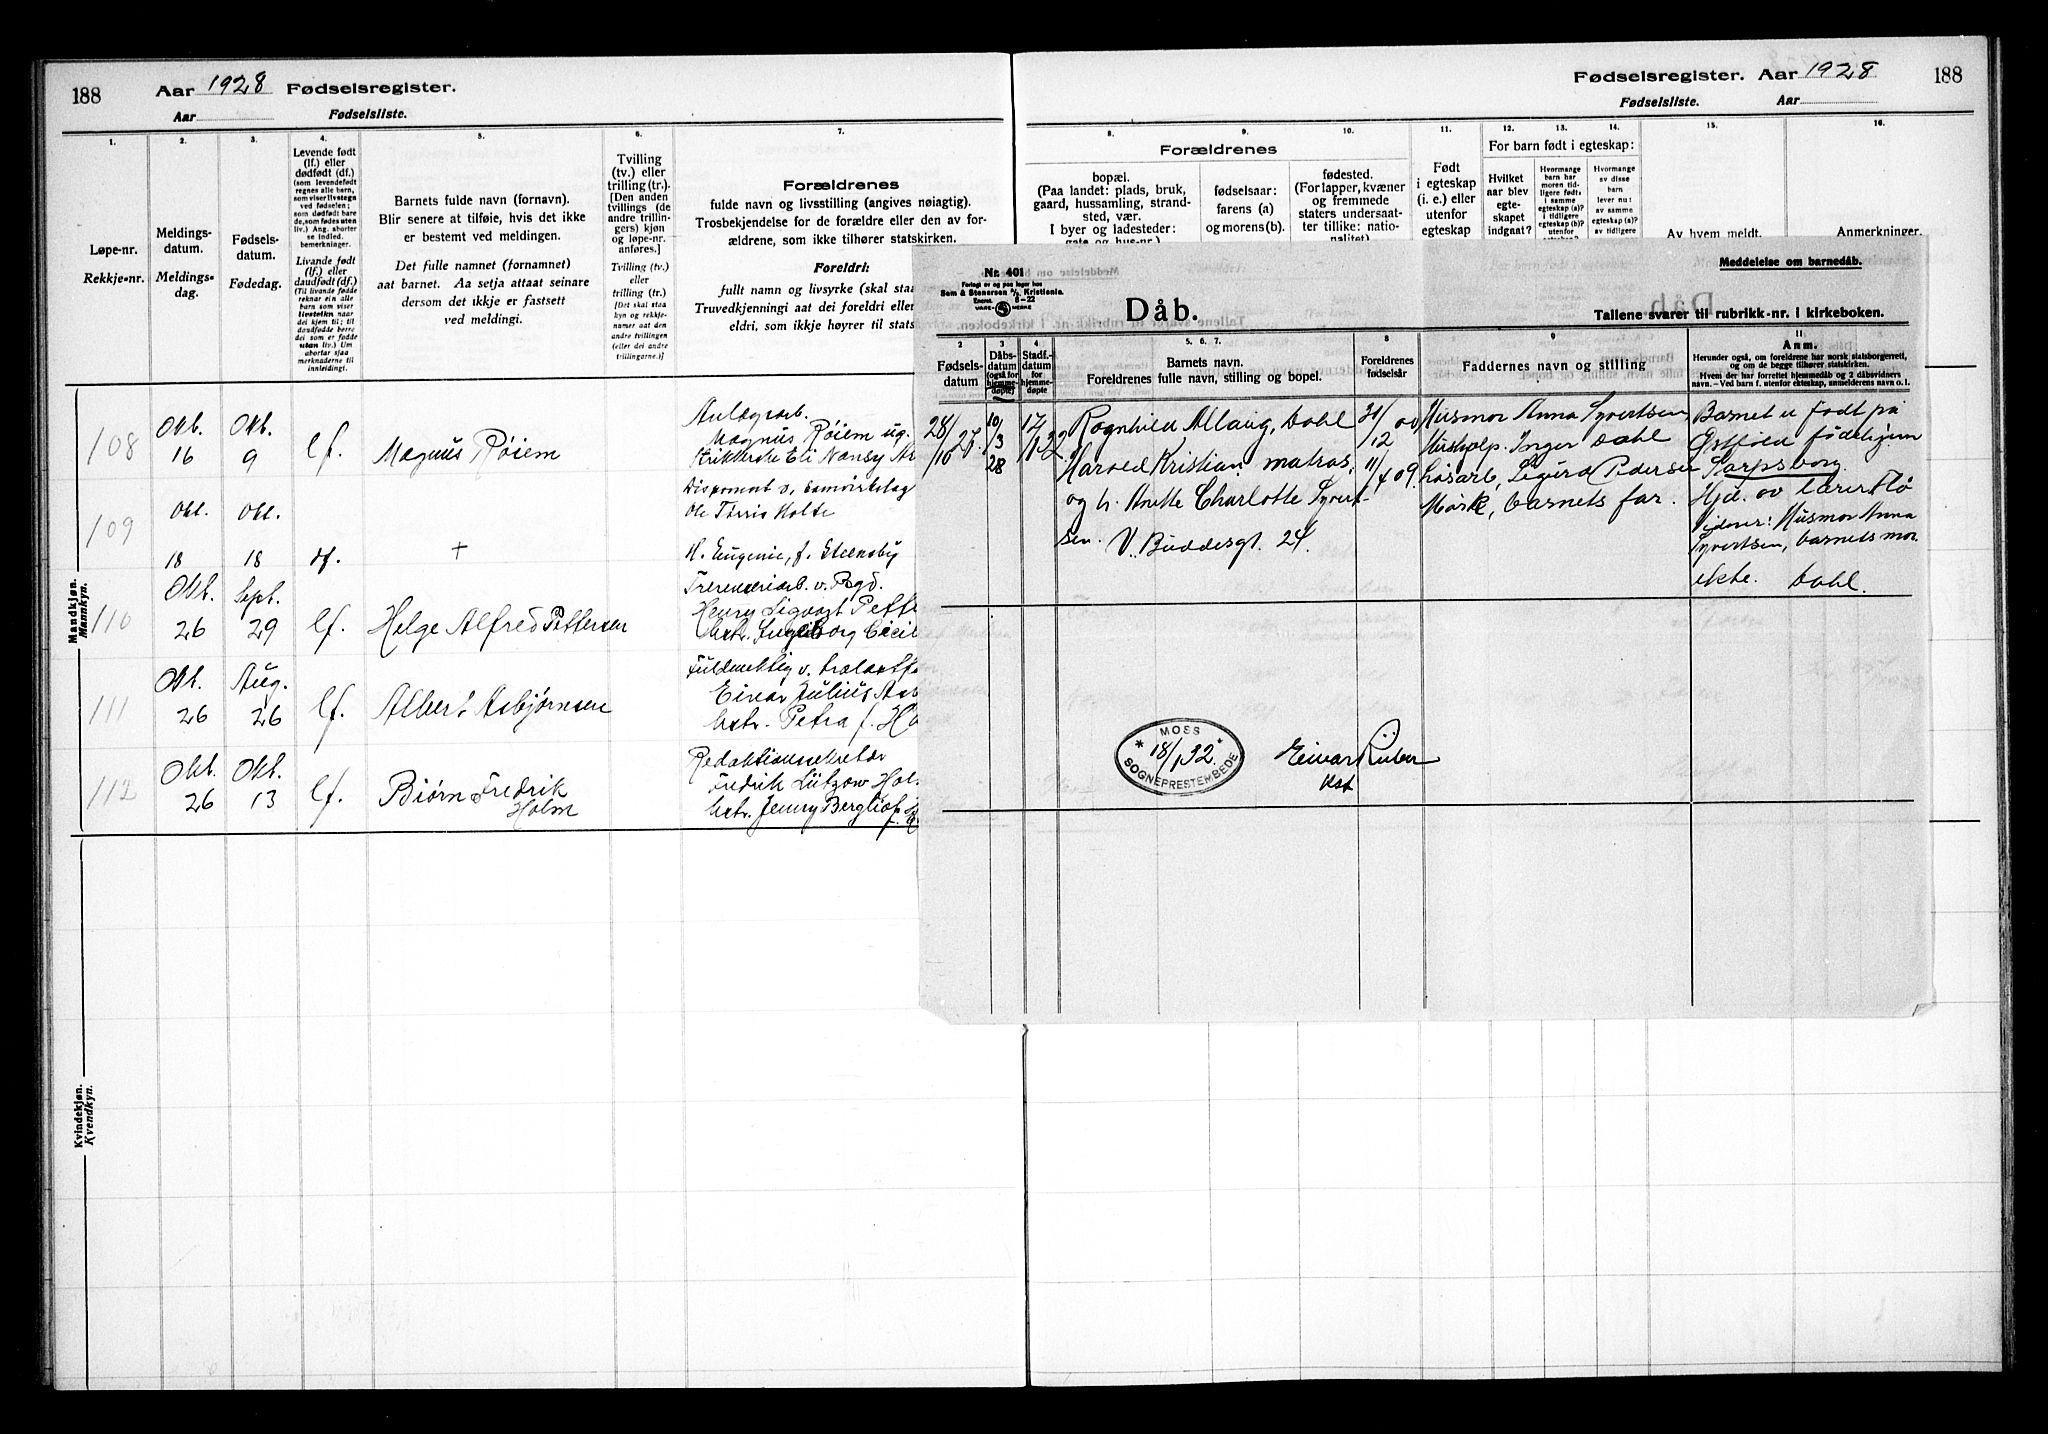 188
Aar 1928 Fødselsregister.
Aar Fødselsliste.
Fødselsregister. Aar 1928
188
Fødselsliste. Aar
1.
Løpe-nr.
Rekkje-nr.
2.
Meldings-
datum.
Meldings-
dag.
3.
Fødsels-
datum.
Fødedag.
4.
Levende født
(lf.) eller
dødfødt (df.)
(som levendefødt
regnes alle barn,
som viser livstegn
ved fødselen;
som dødfødt bare
de, som fødes uten
liv.) Ang. aborter
se indled.
bemerkninger.
Livande fødd
(lf.) eller
daudfødt (df.)
(Til livande fødde
reknar ein alle
born som viser
livsteikn naar
dei kjem til; til
daudfødde berre
dei som er fødde
utan liv.) Um
abortar sjaa
merknaderne til
innleidingi.
5.
Barnets fulde navn (fornavn).
Blir senere at tilføie, hvis det ikke
er bestemt ved meldingen.
Det fulle namnet (fornamnet)
aat barnet. Aa setja attaat seinare
dersom det ikkje er fastsett
ved meldingi.
6.
Tvilling
(tv.) eller
trilling (tr.).
[Den anden
tvillings (de
andre trillin-
gers) kjøn
og løpe-nr.
anføres.]
Tvilling (tv.)
eller
trilling (tr.)
[Det skal staa
kyn og rekkje-
numer aat den
andre tvillingen
(eller dei andre
trillingarne.)]
7.
Forældrenes
fulde navn og livsstilling (angives nøiagtig).
Trosbekjendelse for de forældre eller den av for-
ældrene, som ikke tilhører statskirken.
Foreldri:
fullt namn og livsyrke (skal staa
Truvedkjenningi aat dei foreldri eller
eldri, som ikkje høyrer til stats
Forældrenes
8.
bopæl.
(Paa landet: plads, bruk,
gaard, hussamling, strand-
sted, vær.
I byer og ladesteder:
gate og hus-nr.)
9.
fødselsaar:
farens (a)
og morens (b).
10.
fødested.
(For lapper, kvæner
og fremmede
staters undersaat-
ter tillike: natio-
nalitet)
11.
Født
i egteskap
(i. e.) eller
utenfor
egteskap
For barn født i egteskap:
12.
Hvilket
aar blev
egte-
skapet
indgaat?
13.
Hvormange
barn har
moren tid-
ligere født:
i samme
egteskap (a)?
i tidligere
egteskap (b)?
utenfor
14.
Hvormange
av disse
barn
lever nu:
av samme
egteskap (a)?
av tidligere
15.
Av hvem meldt.
16.
Anmerkninger.
Mandkjøn.
Mannkyn.
108
Okt.
16
Okt.
9
lf.
Magnus Røiem
Anlægsarb.
Magnus Røiem ug.
Eli Nansy
109
Okt.
18
Okt.
18
df.
+
Disponent v. Samvirkelag
Ole Tørris Holte
H. Eugenie, f. Steensby
110
Okt.
26
Sept.
29
lf.
Helge Alfred Pettersen
Henry Sigvart Pette
hstr. Ingeborg Cecil
111
Okt.
26
Aug.
26
lf.
Albert Asbjørnsen
Fuldmektig v.
Einar Julius Asb
hstr. Petra f. H
112
Okt.
26
Okt.
13
lf.
Biørn Fredrik
Holm
Redaktionssekretær
Fredrik Lützow Hol
hstr. Jenny Bergliot
Kvindekjøn.
Kvendkyn.
Nr. 401
Forlagt av og paa lager hos
Sem & Stenersen A/S, Kristiania.
Eneret. 8-22
VARE MERKE
Meddelelse om barnedåb.
Dåb.
Tallene svarer til rubrikk-nr. i kirkeboken.
2
Fødsels-
datum
3
Dåbs-
datum
(også for
hjemme-
døpte)
4
Stadf.-
datum
for
hjemme-
døpte
5. 6. 7.
Barnets navn.
Foreldrenes fulle navn, stilling og bopel.
8
Foreldrenes
fødselsår
9
Faddernes navn og stilling
11.
Anm.
Herunder også, om foreldrene har norsk statsborgerrett,
og om de begge tilhører statskirken.
Hvem der har forrettet hjemmedåb og 2 dåbsvidners
navn. – Ved barn f. utenfor ekteskap, anmelderens navn o. l.
28/10 27.
10/3 28
17/1 32.
Ragnhild Allaug, Dahl
Harald Kristian, matros,
og h. Anette Charlotte Syvert-
sen. V. Buddesgt. 24.
31/12 00
11/4 09.
Husmor Anna Syvertsen,
Hushjelp. Inger Dahl
Løsarb. Sigurd Pedersen
Mørk, barnets far.
Barnet er født på
Østfold fødehjem
Sarpsborg.
Hjd. av lærer Flø
Vidner: Husmor Anna
Syvertsen, barnets mor
ekte. Dahl.
MOSS
18/1 32.
SOGNEPRESTEMBEDE
Einar
kst